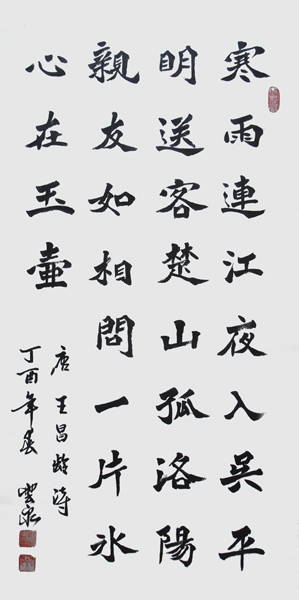 寒雨連江夜入吳平
明送客楚山孤洛陽
親友如相問一片冰
心在玉壺
唐王昌齡詩
丁酉年春